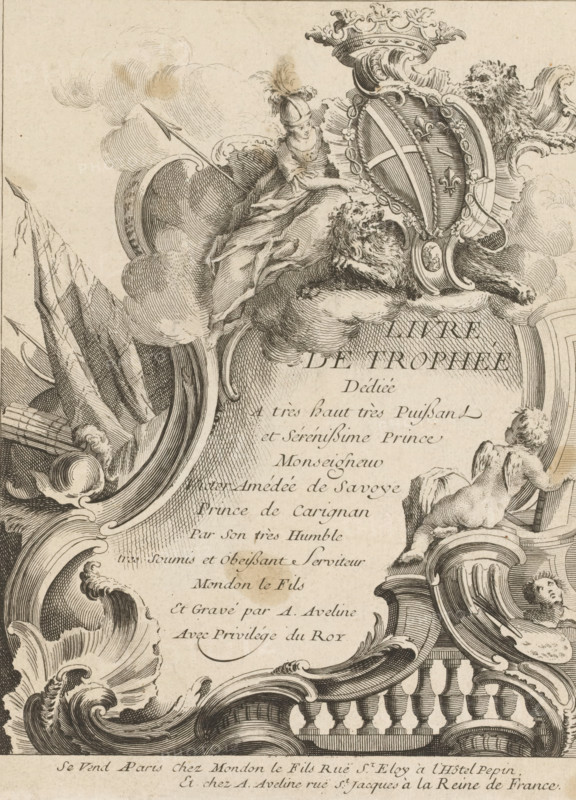 LIVRE
DE TROPHÉE
Dédiée
A très haut très Puißant
et Sérénißime Prince
Monseigneur
Victor Amédée de Savoye
Prince de Carignan
Par Son très Humble
tres Soumis et Obeißant Serviteur
Mondon le Fils
Et Gravé par A. Aveline
Avec Privilége du Roy
Se Vend A Paris Chez Mondon le Fils Rue St. Eloy à l'Hôtel Pepin.
Et chez A. Aveline rue St. Jacques à la Reine de France.